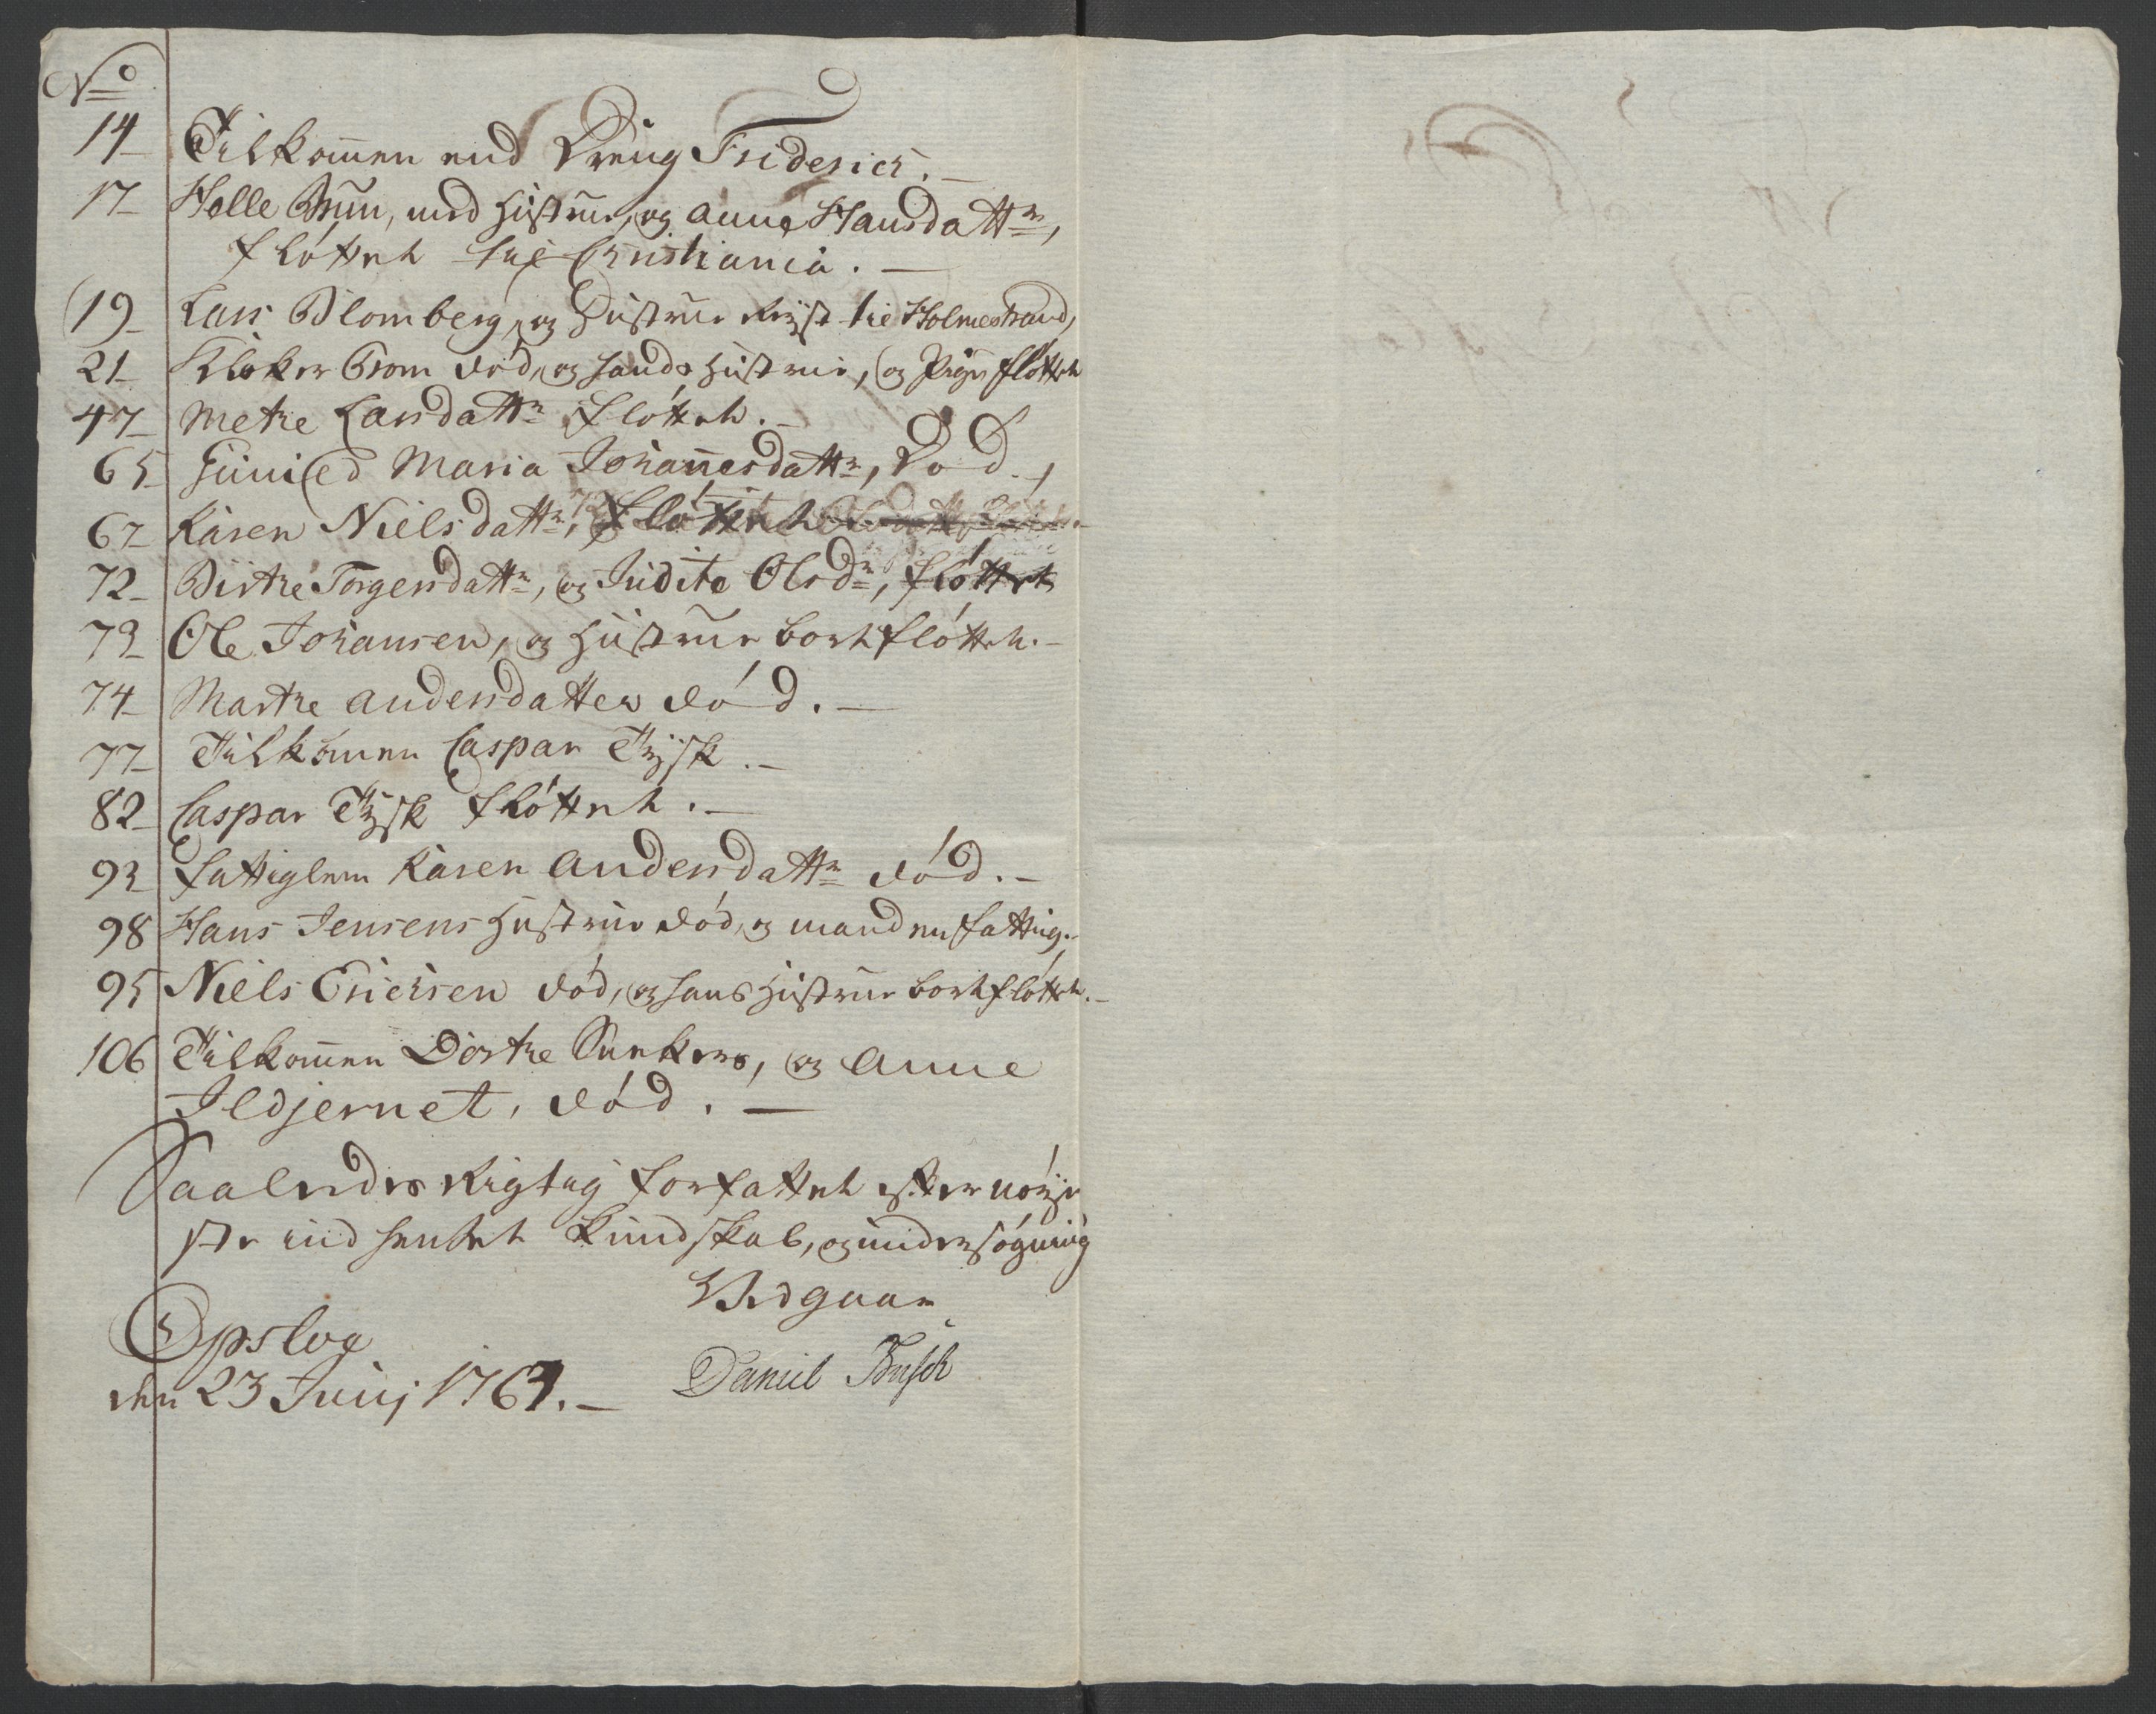 No
14 Tilkommen end Dreng Friderich.
17 Helle Bruun, med Hustrue, og Anne Hansdattr,
fløttet til Christiania.
19 Lars Blomberg, og Hustrue reyst til Holmestrand,
21 Klokker Brom død, og hands Hustrue, og Pige fløttet
47 Mette Larsdattr fløttet.
65 Maria Johannesdattr, Død,
67 Karen Nielsdattr, fløttet
72 Birthe Torgersdattr, og Judite Olsdr, fløttet
73 Ole Johansen, og Hustrue bortfløttet.
74 Marthe Andersdatter død.
77 Tilkommen Caspar Tysk.
82 Caspar Tysk fløttet.
93 Fattiglem Karen Andersdattr død.
98 Hans Jensens Hustrue død, og manden fattig.
95 Niels Erichsen død, og hans Hustrue bortfløttet.
106 Tilkommen Dorthe Sunkers, og Anne
Ildjernet, død.
Saaledes Rigtig forfattet efter nøye
ste indhentet Kundskab, og undersøgning
Vidgaar
Opsloe
den 23 Junj 1764.
Daniel Busch